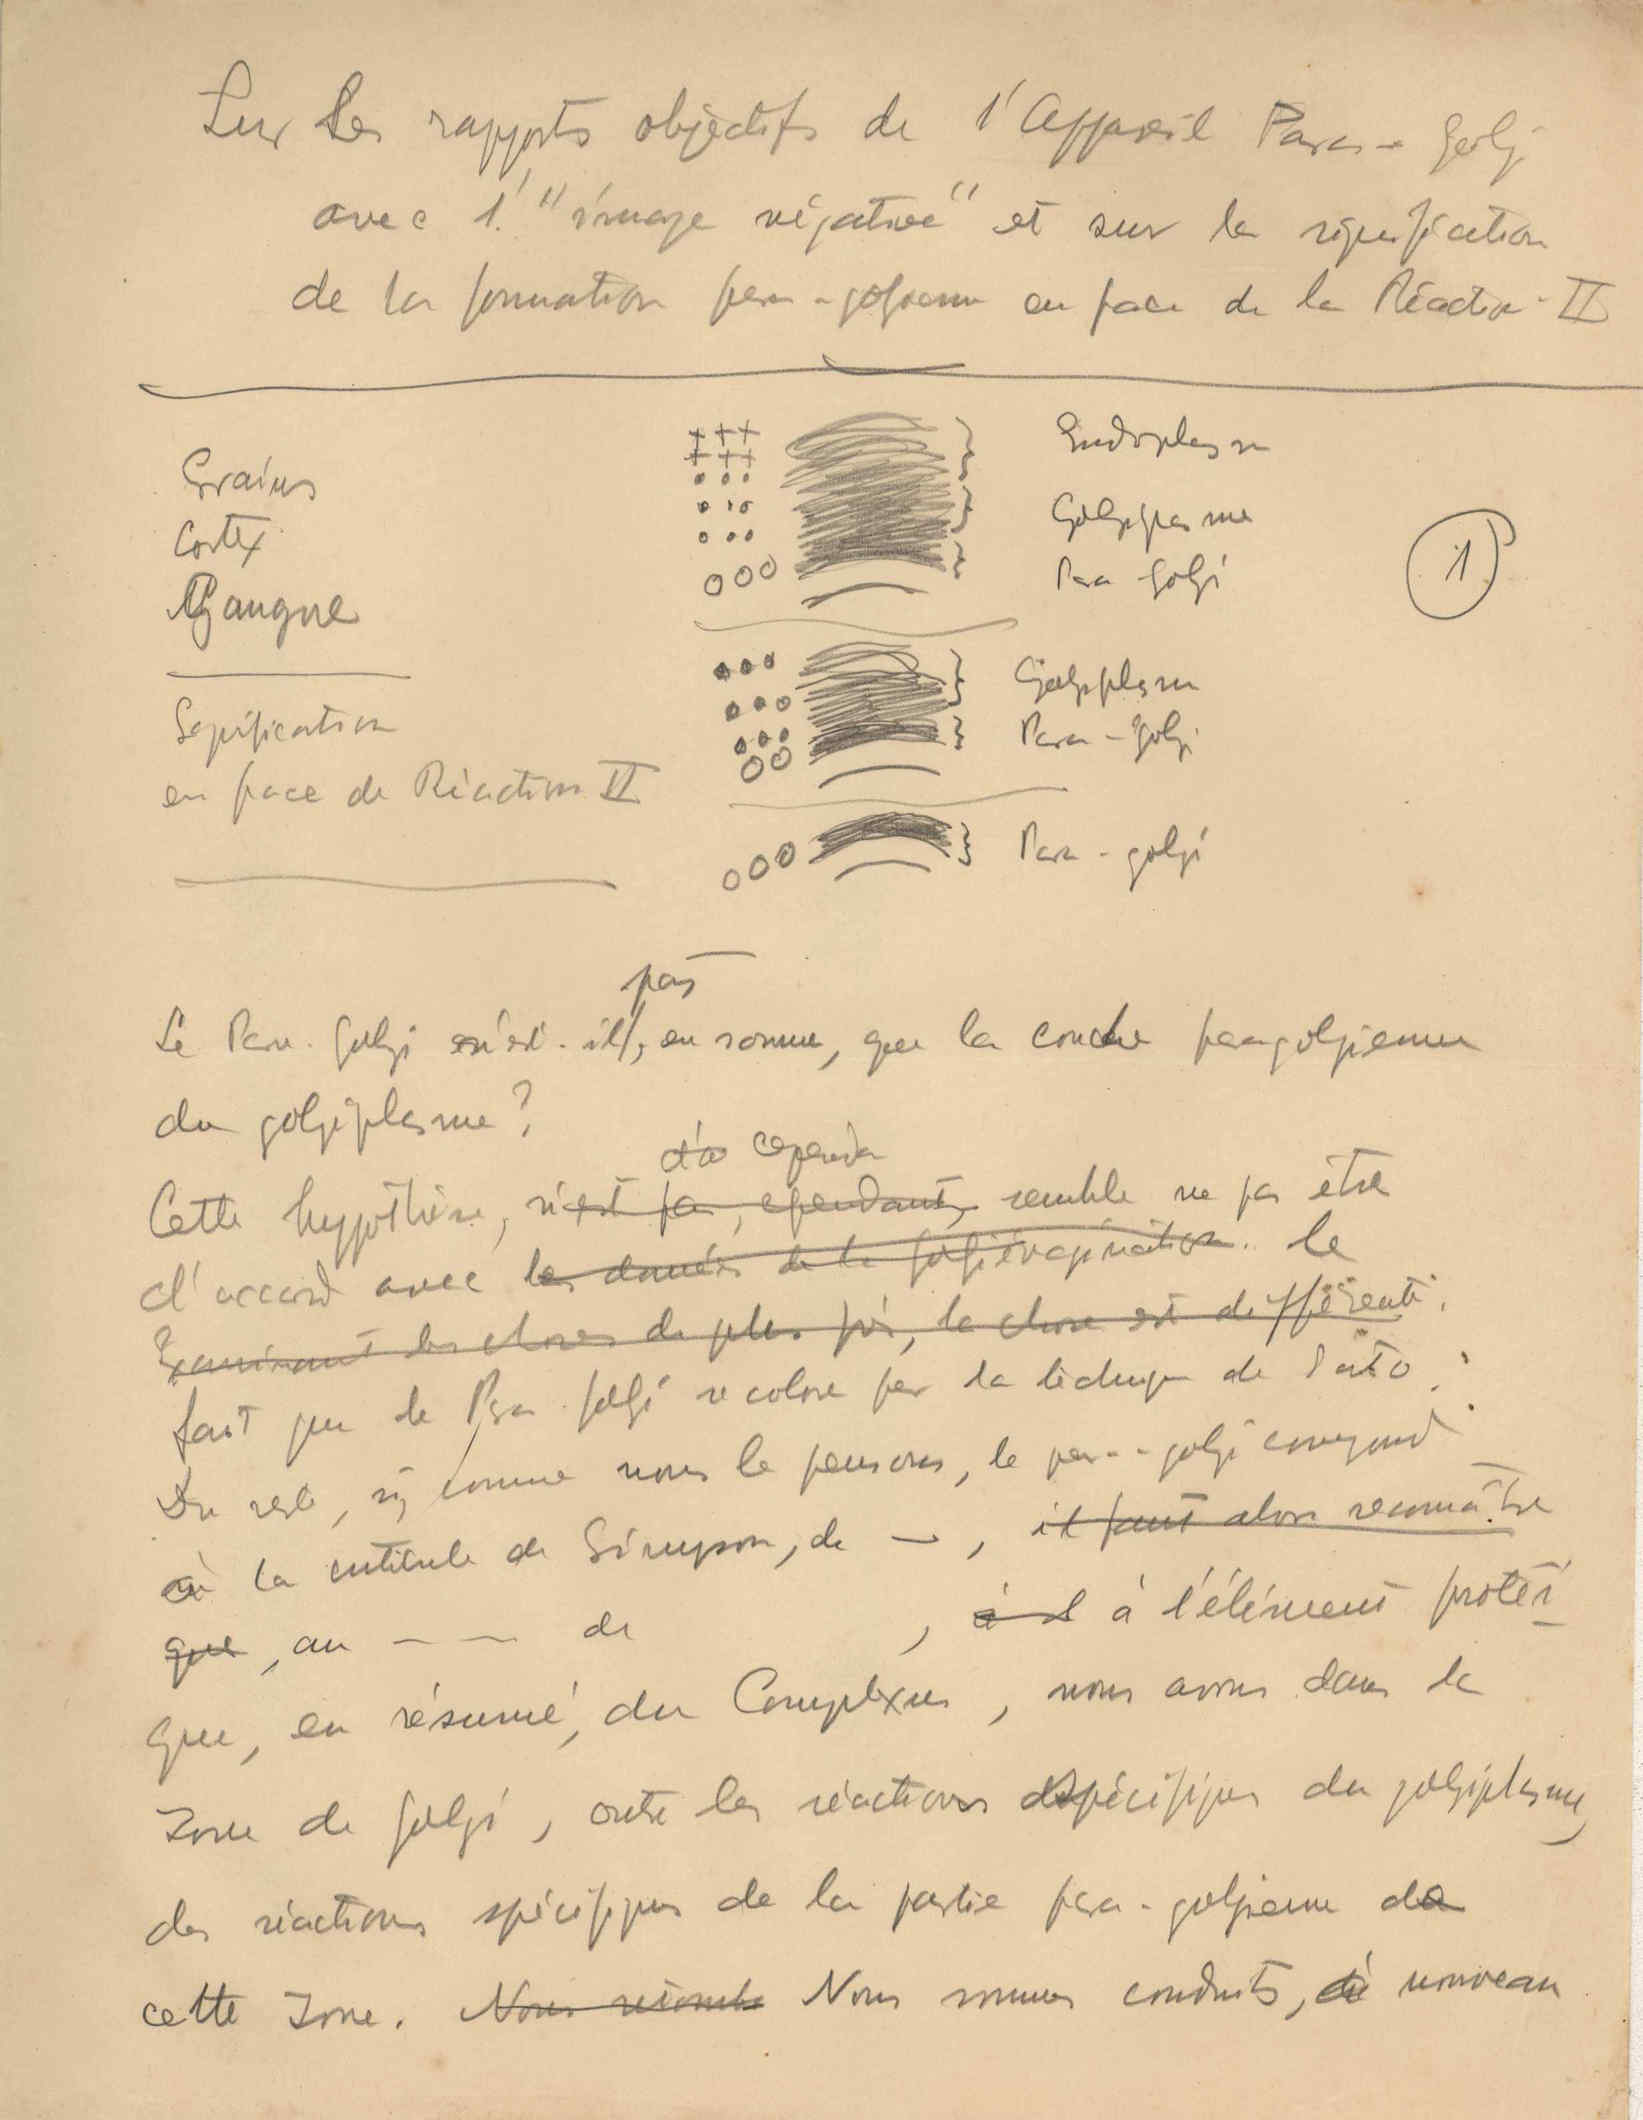 Sur Les rapports objectifs de l'Appareil Para-Golgi
avec l' "image négative" et sur la signification
de la formation para-golgienne en face de la Réaction II
Grains
Cortex
Gangue
Signification
en face de Réaction II
Endoplasm
Golgiplasme
Para Golgi
1
Golgiplasm
Para-Golgi
Para-golgi
pas
Le Para-Golgi n'est-il, en somme, que la couche paragolgienne
du golgiplasme?
cependa
Cette hypothèse, n'est pas, cependant, semble ne pas être
d'accord avec les données de la golgiévagination. le
Examinant les choses de plus près, la chose est différente.
fait que le Para Golgi se colore par la technique de
Du reste, si, comme nous le pensons, le para-golgi correspond
à la cuticule de Simpson, de —, il faut alors reconnaître
que, au — — de , à l à l'élément protéi-
que, en résumé, du Complexus, nous avons dans la
Zone de Golgi, outre les réactions spécifiques du golgiplasme,
des réactions spécifiques de la partie para-golgienne de
cette Zone. Nous Nous sommes conduits, de nouveau